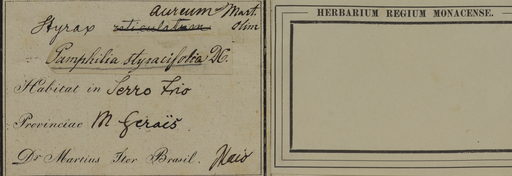 aureum Mart.
Styrax reticulatum olim
Pamphilia styracifolia DC.
Habitat in Serro Frio
Provinciae M Geraës.
Dr Martius Iter Brasil. Maio
HERBARIUM REGIUM MONACENSE.